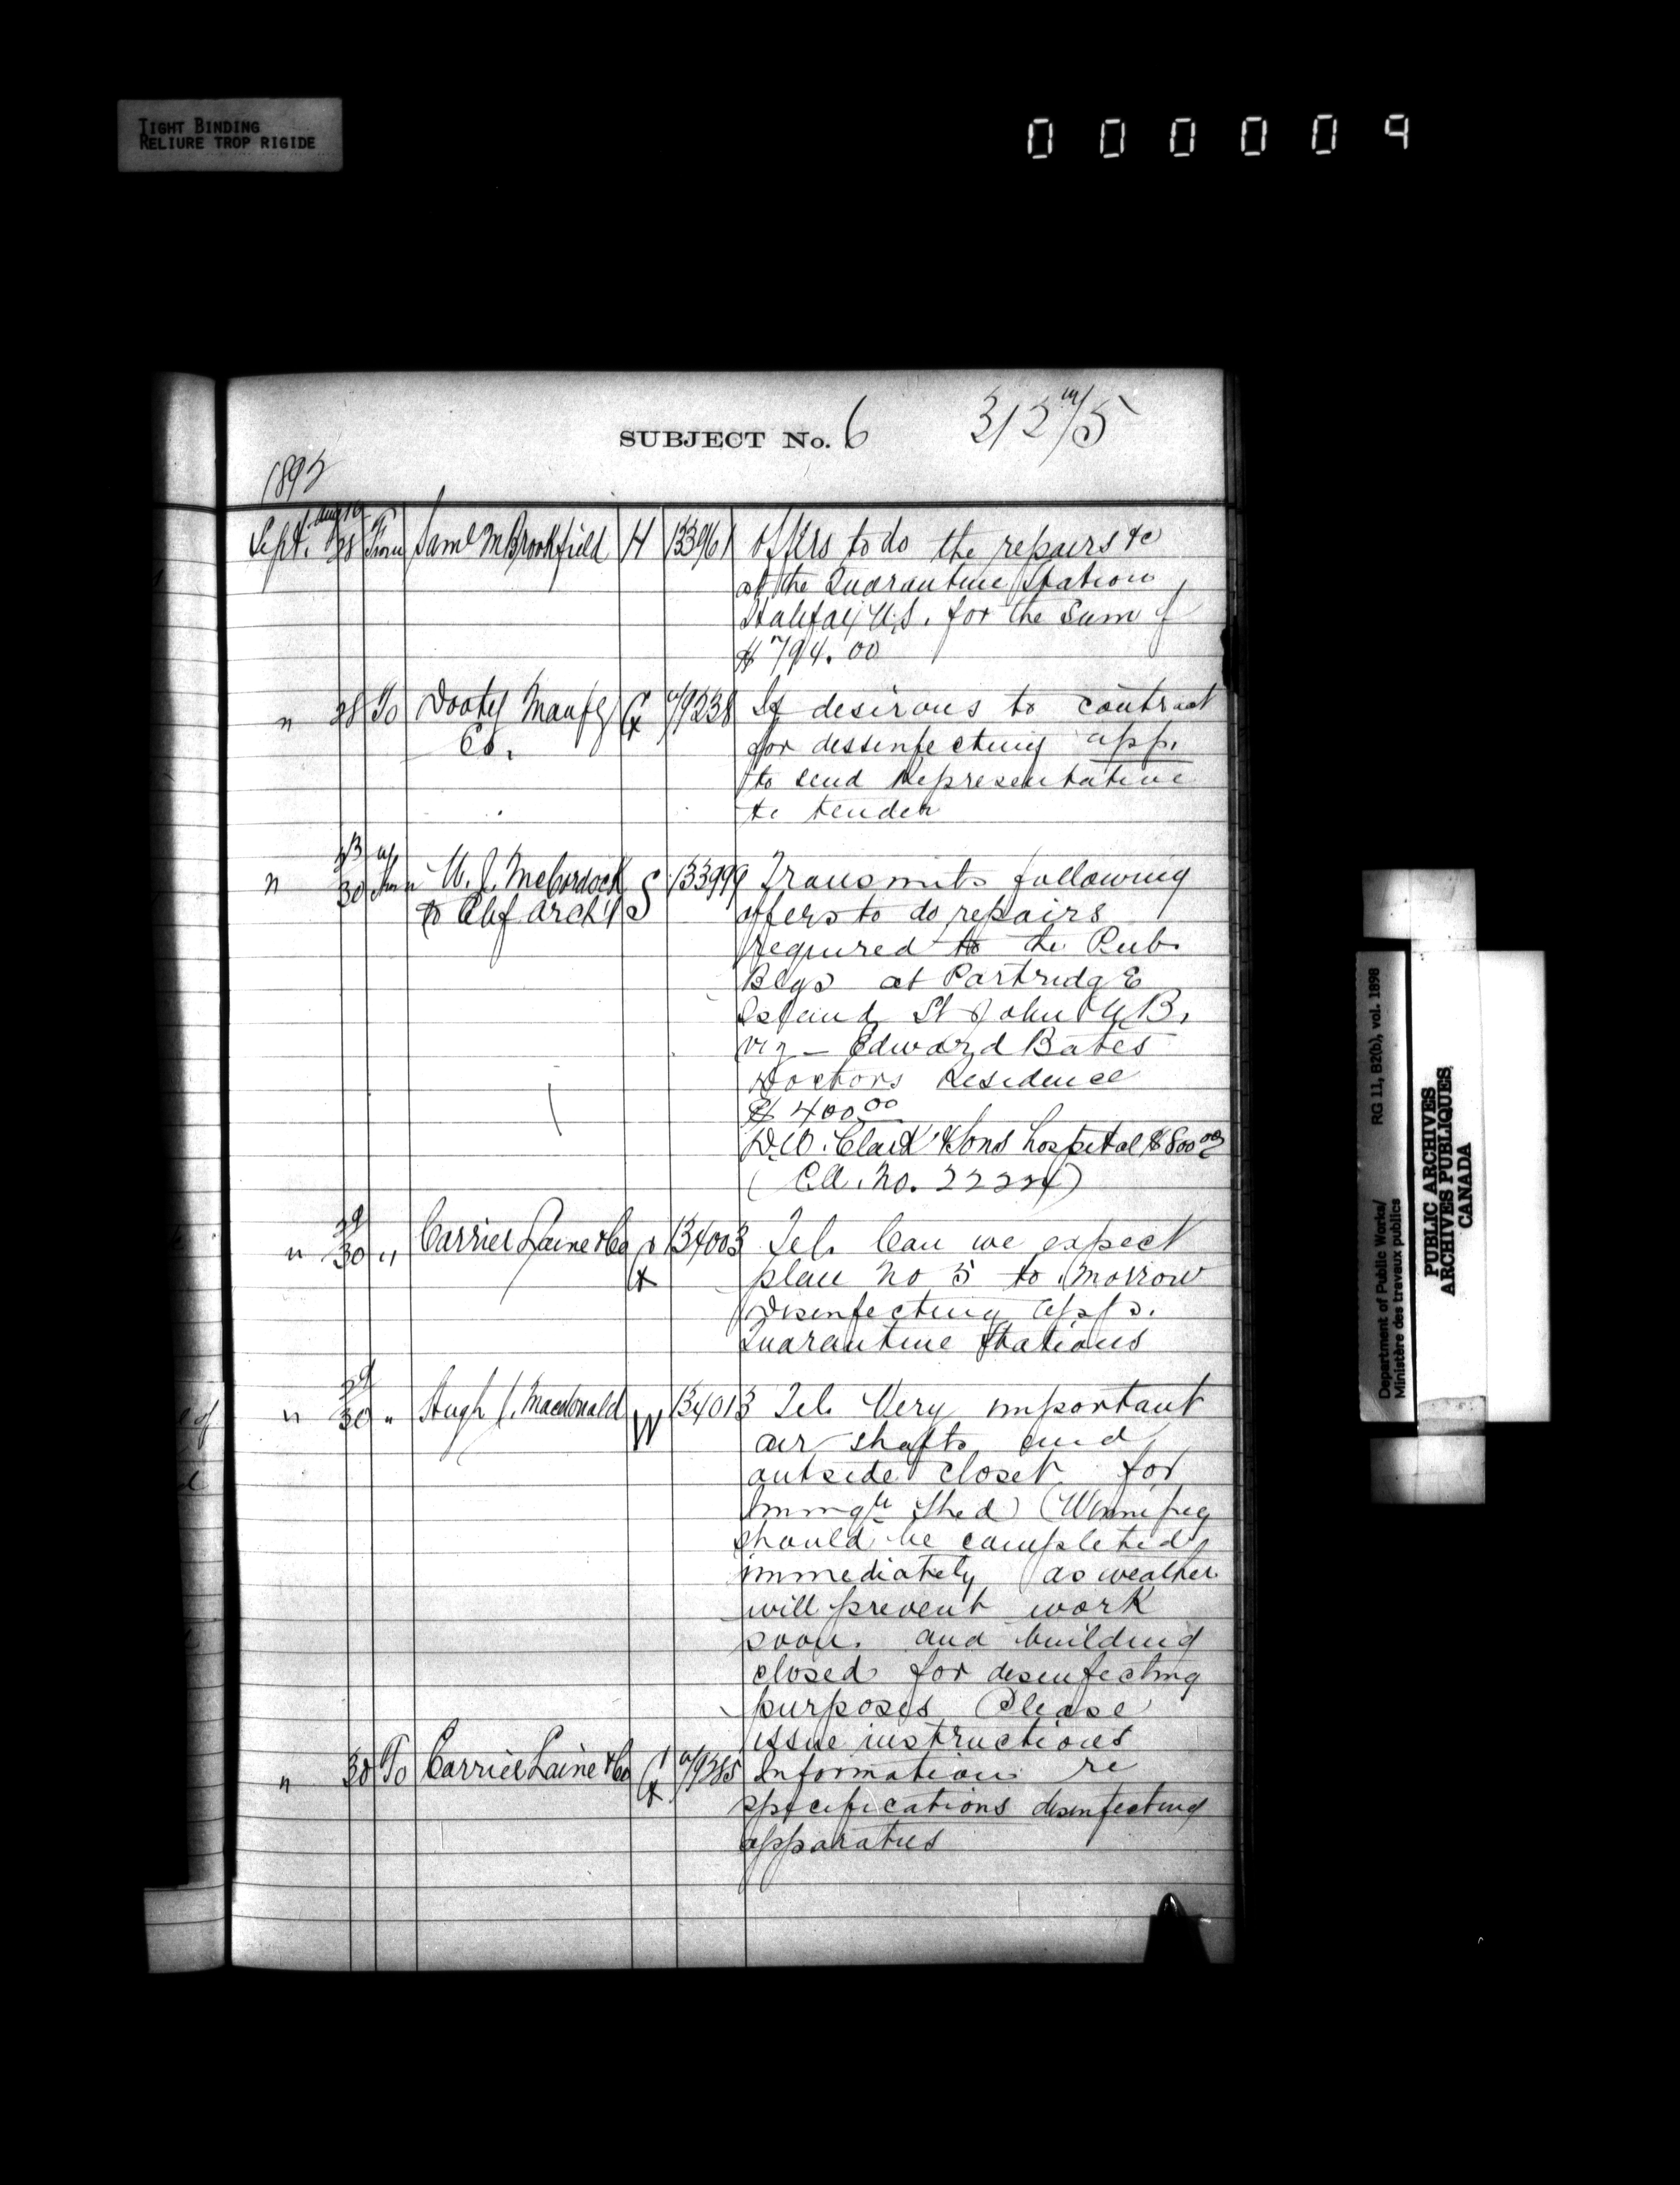 TIGHT BINDING
RELIURE TROP RIGIDE
000009
SUBJECT No. 6
312 m/5
189
Sept. Aug 19 28 From Saml M Brookfield H 133961 Offers to do the repairs &c
at the Quarantine Station
Halifax N.S. for the Sum of
$794.00
" 28 To Dooty Manufg 9238 If desirous to contract
Co. for dessinfecting app.
to send Representative
to tender
" 30 W. J. McCordock S 133999 Transmits following
to Chf Arch't offers to do repairs
required to the Pub.
Blgs at Partridge
Island St John N.B.
viz - Edward Bates
Doctors Residence
$400.00
D.W. Clark & Sons hospital $800.00
(C.A. No. 22224)
29
" 30 " Carrier Laine & Co 134003 Tel. Can we expect
plan No 5 to morrow
Disinfecting apps.
Quarantine Stations
29
" 30 " Hugh J. Macdonald W 134013 Tel. Very important
air shafts and
outside closet for
Immgtn Shed (Winnipeg
should be completed
immediately as weather
will prevent work
soon. and building
closed for desinfecting
purposes Please
issue instructions
" 30 To Carrier Laine & Co 9285 Information re
specifications disinfecting
apparatus
Department of Public Works/ RG 11, B2(b), vol. 1898
Ministère des travaux publics
PUBLIC ARCHIVES
ARCHIVES PUBLIQUES
CANADA